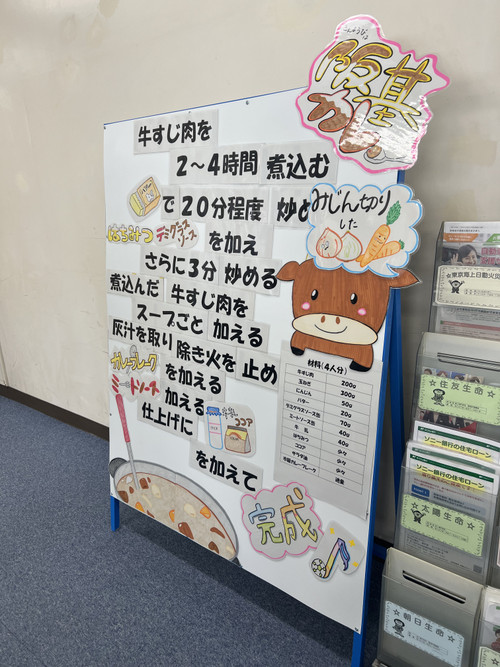 阪基
カレー
牛すじ肉を
2～4時間 煮込む
みじん切り
した
で 20分程度 炒め
はちみつ デミグラスソース を加え
さらに3分 炒める
煮込んだ 牛すじ肉を
スープごと 加える
灰汁を取り 除き火を 止め
カレーフレーク を加える
ミートソース 加える
仕上げに
牛乳
ココア
を加えて
完成
材料(4人分)
牛すじ肉 200g
玉ねぎ 300g
にんじん 50g
バター 20g
デミグラスソース缶 70g
ミートソース缶 40g
牛 乳 40g
はちみつ 少々
ココア 少々
★東京海上日動火災
☆住友生命☆
ソニー銀行の住宅ローン
ソニー銀行の住宅ローン
☆太陽生命☆
☆朝日生命☆